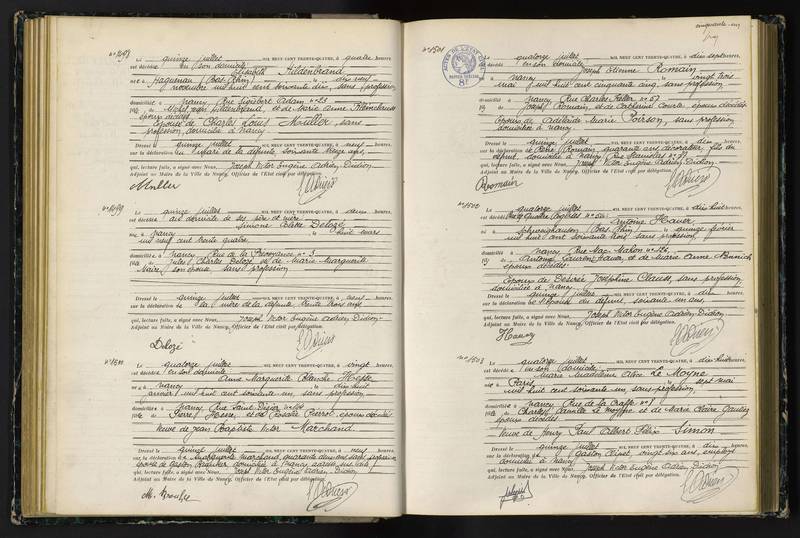 N° 1498
Le quinze juillet MIL NEUF CENT TRENTE-QUATRE, à quatre heures,
est décédée en son domicile Elisabeth Hildenbrand
née à Haguenau (Bas-Rhin) dix neuf
novembre mil huit cent soixante dix, sans profession
domiciliée à Nancy, Rue Sigisbert Adam n° 23
fille de Hildenbrand, et de Marie Anne
époux décédés
Epouse de Charles Louis Muller, sans
profession, domicilié à Nancy
Dressé le quinze juillet MIL NEUF CENT TRENTE-QUATRE, à neuf heures,
sur la déclaration de de la défunte, soixante treize ans,
qui, lecture faite, a signé avec Nous, Joseph Victor Eugène Adrien Didion
Adjoint au Maire de la Ville de Nancy, Officier de l'Etat civil par délégation.
Muller
N° 1499
Le quinze juillet MIL NEUF CENT TRENTE-QUATRE, à deux heures,
est décédée au domicile de ses père et mère
Simone Colette Delozé
née à Nancy huit mars
mil neuf cent trente quatre
domiciliée à Nancy Rue de la Prévoyance n° 3
fille de Jules Charles Delozé et de Marie Marguerite
son épouse sans profession
Dressé le quinze juillet MIL NEUF CENT TRENTE-QUATRE, à neuf heures,
sur la déclaration de de la défunte trente trois ans
qui, lecture faite, a signé avec Nous, Joseph Victor Eugène Adrien Didion
Adjoint au Maire de la Ville de Nancy, Officier de l'Etat civil par délégation.
Delozé
N° 1500
Le quatorze juillet MIL NEUF CENT TRENTE-QUATRE, à vingt heures,
est décédée en son domicile
Anne Marguerite Blanche Hesse
née à Nancy dix huit
janvier mil huit cent soixante un, sans profession
domiciliée à Nancy Rue Saint Dizier
fille de Pierre Hesse, et de Rosalie Pierrot, époux décédés
Veuve de Jean Baptiste Victor Marchand
Dressé le quinze juillet MIL NEUF CENT TRENTE-QUATRE, à neuf heures,
sur la déclaration de Marguerite Marchand, quarante deux ans sans profession
épouse de Gaston domiciliée à Nancy
qui, lecture faite, a signé avec Nous, Joseph Victor Eugène Adrien Didion
Adjoint au Maire de la Ville de Nancy, Officier de l'Etat civil par délégation.
cinquante-un
N° 1501
Le quatorze juillet MIL NEUF CENT TRENTE-QUATRE, à dix sept heures,
est décédé en son domicile
Joseph Etienne Romain
né à Nancy vingt trois
mai mil huit cent cinquante cinq, sans profession
domicilié à Nancy Rue Charles Keller n° 57
fils de Joseph Romain, et de Catherine Courte époux décédés
Epoux de Adélaïde Marie Poirson, sans profession
domiciliée à Nancy
Dressé le quinze juillet MIL NEUF CENT TRENTE-QUATRE, à dix heures,
sur la déclaration de René Romain quarante ans, décorateur, fils du
défunt, domicilié à Nancy Rue Stanislas
qui, lecture faite, a signé avec Nous, Joseph Victor Eugène Adrien Didion
Adjoint au Maire de la Ville de Nancy, Officier de l'Etat civil par délégation.
Romain
N° 1502
Le quatorze juillet MIL NEUF CENT TRENTE-QUATRE, à dix huit heures,
est décédé Quatre Eglises
Antoine Hauer
né à Schweighausen (Bas-Rhin) quinze février
mil huit cent soixante trois, sans profession
domicilié à Nancy Rue Mac-Mahon
fils de Antoine Laurent Hauer, et de Marie Anne
époux décédés
Epoux de Désirée Joséphine Clauss, sans profession,
domiciliée à Nancy
Dressé le quinze juillet MIL NEUF CENT TRENTE-QUATRE, à dix heures,
sur la déclaration de l'épouse du défunt, soixante un ans,
qui, lecture faite, a signé avec Nous, Joseph Victor Eugène Adrien Didion
Adjoint au Maire de la Ville de Nancy, Officier de l'Etat civil par délégation.
N° 1503
Le quatorze juillet MIL NEUF CENT TRENTE-QUATRE, à dix huit heures,
est décédée en son domicile
Marie Madeleine Alice Le Moyne
née à Paris sept mai
mil huit cent soixante un, sans profession,
domiciliée à Nancy Rue de la Craffe n° 1
fille de Charles Le Moyne et de Marie Claire
époux décédés
Veuve de Henry Paul Albert Félix Simon
Dressé le quinze juillet MIL NEUF CENT TRENTE-QUATRE, à dix heures,
sur la déclaration de Gaston vingt six ans, employé
domicilié à Nancy
qui, lecture faite, a signé avec Nous, Joseph Victor Eugène Adrien Didion
Adjoint au Maire de la Ville de Nancy, Officier de l'Etat civil par délégation.